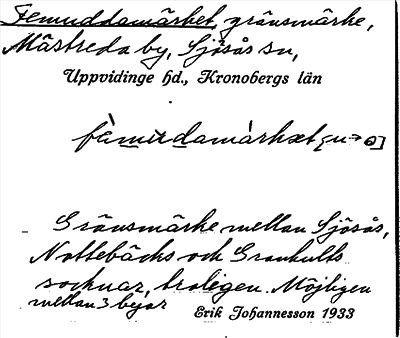 Femuddamärket, gränsmärke,
Mästreda by, Sjösås sn,
Uppvidinge hd., Kronobergs län
Gränsmärke mellan Sjösås,
Nottebäcks och Granhults
socknar, troligen. Möjligen
mellan 3 byar
Erik Johannesson 1933